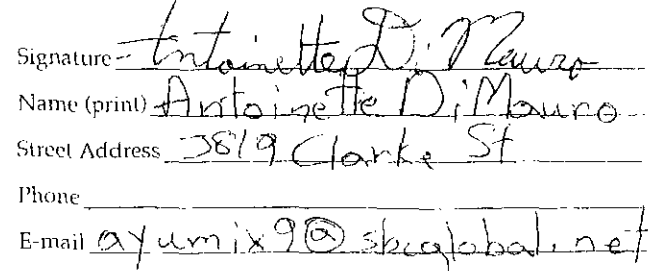 Signature Antoinette DiMauro
Name (print) Antoinette DiMauro
Street Address 3819 Clarke St
Phone
E-mail ayumix9@sbcglobal.net